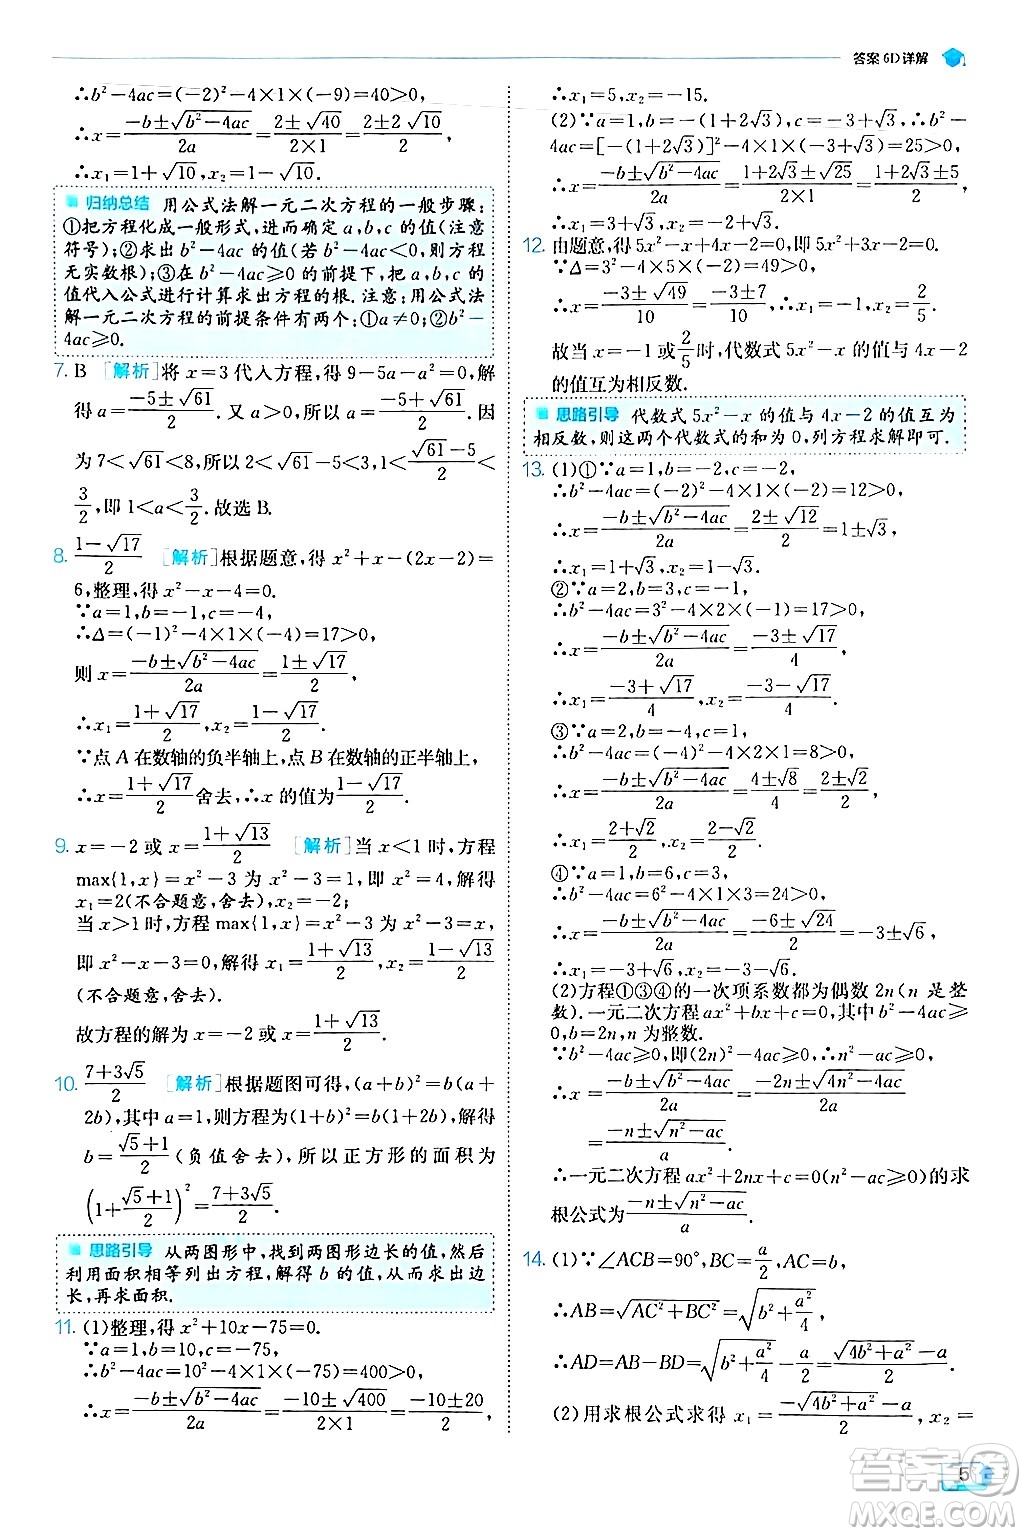 答案 6D 详解
∴b²-4ac=(-2)²-4×1×(-9)=40>0,
∴x=(-b±√(b²-4ac))/(2a)=(2±√40)/(2×1)=(2±2√10)/2,
∴x₁=1+√10,x₂=1-√10.
归纳总结 用公式法解一元二次方程的一般步骤:
①把方程化成一般形式,进而确定 a,b,c 的值(注意
符号);②求出 b²-4ac 的值(若 b²-4ac<0,则方程
无实数根);③在 b²-4ac≥0 的前提下,把 a,b,c 的
值代入公式进行计算求出方程的根.注意:用公式法
解一元二次方程的前提条件有两个:①a≠0;②b²-
4ac≥0.
7. B [解析]将 x=3 代入方程,得 9-5a-a²=0,解
得 a=(-5±√61)/2.又 a>0,所以 a=(-5+√61)/2.因
为 7<√61<8,所以 2<√61-5<3,所以 1<(√61-5)/2<
3/2,即 1<a<3/2.故选 B.
8. (1-√17)/2 [解析]根据题意,得 x²+x-(2x-2)=
6,整理,得 x²-x-4=0.
∵a=1,b=-1,c=-4,
∴Δ=(-1)²-4×1×(-4)=17>0,
则 x=(-b±√(b²-4ac))/(2a)=(1±√17)/2,
∴x₁=(1+√17)/2,x₂=(1-√17)/2.
∵点 A 在数轴的负半轴上,点 B 在数轴的正半轴上,
∴x=(1+√17)/2舍去,∴x 的值为(1-√17)/2.
9. x=-2 或 x=(1+√13)/2 [解析]当 x<1 时,方程
max{1,x}=x²-3 为 x²-3=1,即 x²=4,解得
x₁=2(不合题意,舍去),x₂=-2;
当 x>1 时,方程 max{1,x}=x²-3 为 x²-3=x,
即 x²-x-3=0,解得 x₁=(1+√13)/2,x₂=(1-√13)/2
(不合题意,舍去).
故方程的解为 x=-2 或 x=(1+√13)/2.
10. (7+3√5)/2 [解析]根据题图可得,(a+b)²=b(a+
2b),其中 a=1,则方程为(1+b)²=b(1+2b),解得
b=(√5+1)/2(负值舍去),所以正方形的面积为
(1+(√5+1)/2)²=(7+3√5)/2.
思路引导 从两图形中,找到两图形边长的值,然后
利用面积相等列出方程,解得 b 的值,从而求出边
长,再求面积.
11. (1)整理,得 x²+10x-75=0.
∵a=1,b=10,c=-75,
∴b²-4ac=10²-4×1×(-75)=400>0,
∴x=(-b±√(b²-4ac))/(2a)=(-10±√400)/(2×1)=(-10±20)/2,
∴x₁=5,x₂=-15.
(2)∵a=1,b=-(1+2√3),c=-3+√3,∴b²-
4ac=[-(1+2√3)]²-4×1×(-3+√3)=25>0,
∴x=(-b±√(b²-4ac))/(2a)=(1+2√3±√25)/(2×1)=(1+2√3±5)/2,
∴x₁=3+√3,x₂=-2+√3.
12. 由题意,得 5x²-x+4x-2=0,即 5x²+3x-2=0.
∵Δ=3²-4×5×(-2)=49>0,
∴x=(-3±√49)/10=(-3±7)/10,∴x₁=-1,x₂=2/5.
故当 x=-1 或2/5时,代数式 5x²-x 的值与 4x-2
的值互为相反数.
思路引导 代数式 5x²-x 的值与 4x-2 的值互为
相反数,则这两个代数式的和为 0,列方程求解即可.
13. (1)①∵a=1,b=-2,c=-2,
∴b²-4ac=(-2)²-4×1×(-2)=12>0,
∴x=(-b±√(b²-4ac))/(2a)=(2±√12)/2=1±√3,
∴x₁=1+√3,x₂=1-√3.
②∵a=2,b=3,c=-1,
∴b²-4ac=3²-4×2×(-1)=17>0,
∴x=(-b±√(b²-4ac))/(2a)=(-3±√17)/4,
∴x₁=(-3+√17)/4,x₂=(-3-√17)/4.
③∵a=2,b=-4,c=1,
∴b²-4ac=(-4)²-4×2×1=8>0,
∴x=(-b±√(b²-4ac))/(2a)=(4±√8)/4=(2±√2)/2,
∴x₁=(2+√2)/2,x₂=(2-√2)/2.
④∵a=1,b=6,c=3,
∴b²-4ac=6²-4×1×3=24>0,
∴x=(-b±√(b²-4ac))/(2a)=(-6±√24)/2=-3±√6,
∴x₁=-3+√6,x₂=-3-√6.
(2)方程①③④的一次项系数都为偶数 2n(n 是整
数).一元二次方程 ax²+bx+c=0,其中 b²-4ac≥
0,b=2n,n 为整数.
∵b²-4ac≥0,即(2n)²-4ac≥0,∴n²-ac≥0,
∴x=(-b±√(b²-4ac))/(2a)=(-2n±√((2n)²-4ac))/(2a)=(-2n±2√(n²-ac))/(2a)
=(-n±√(n²-ac))/a.
∴一元二次方程 ax²+2nx+c=0(n²-ac≥0)的求
根公式为(-n±√(n²-ac))/a.
14. (1)∵∠ACB=90°,BC=a/2,AC=b,
∴AB=√(AC²+BC²)=√(b²+a²/4),
∴AD=AB-BD=√(b²+a²/4)-a/2=(√(4b²+a²)-a)/2.
(2)用求根公式求得 x₁=(-√(4b²+a²)-a)/2,x₂=
5
答案圈
MXQE.COM